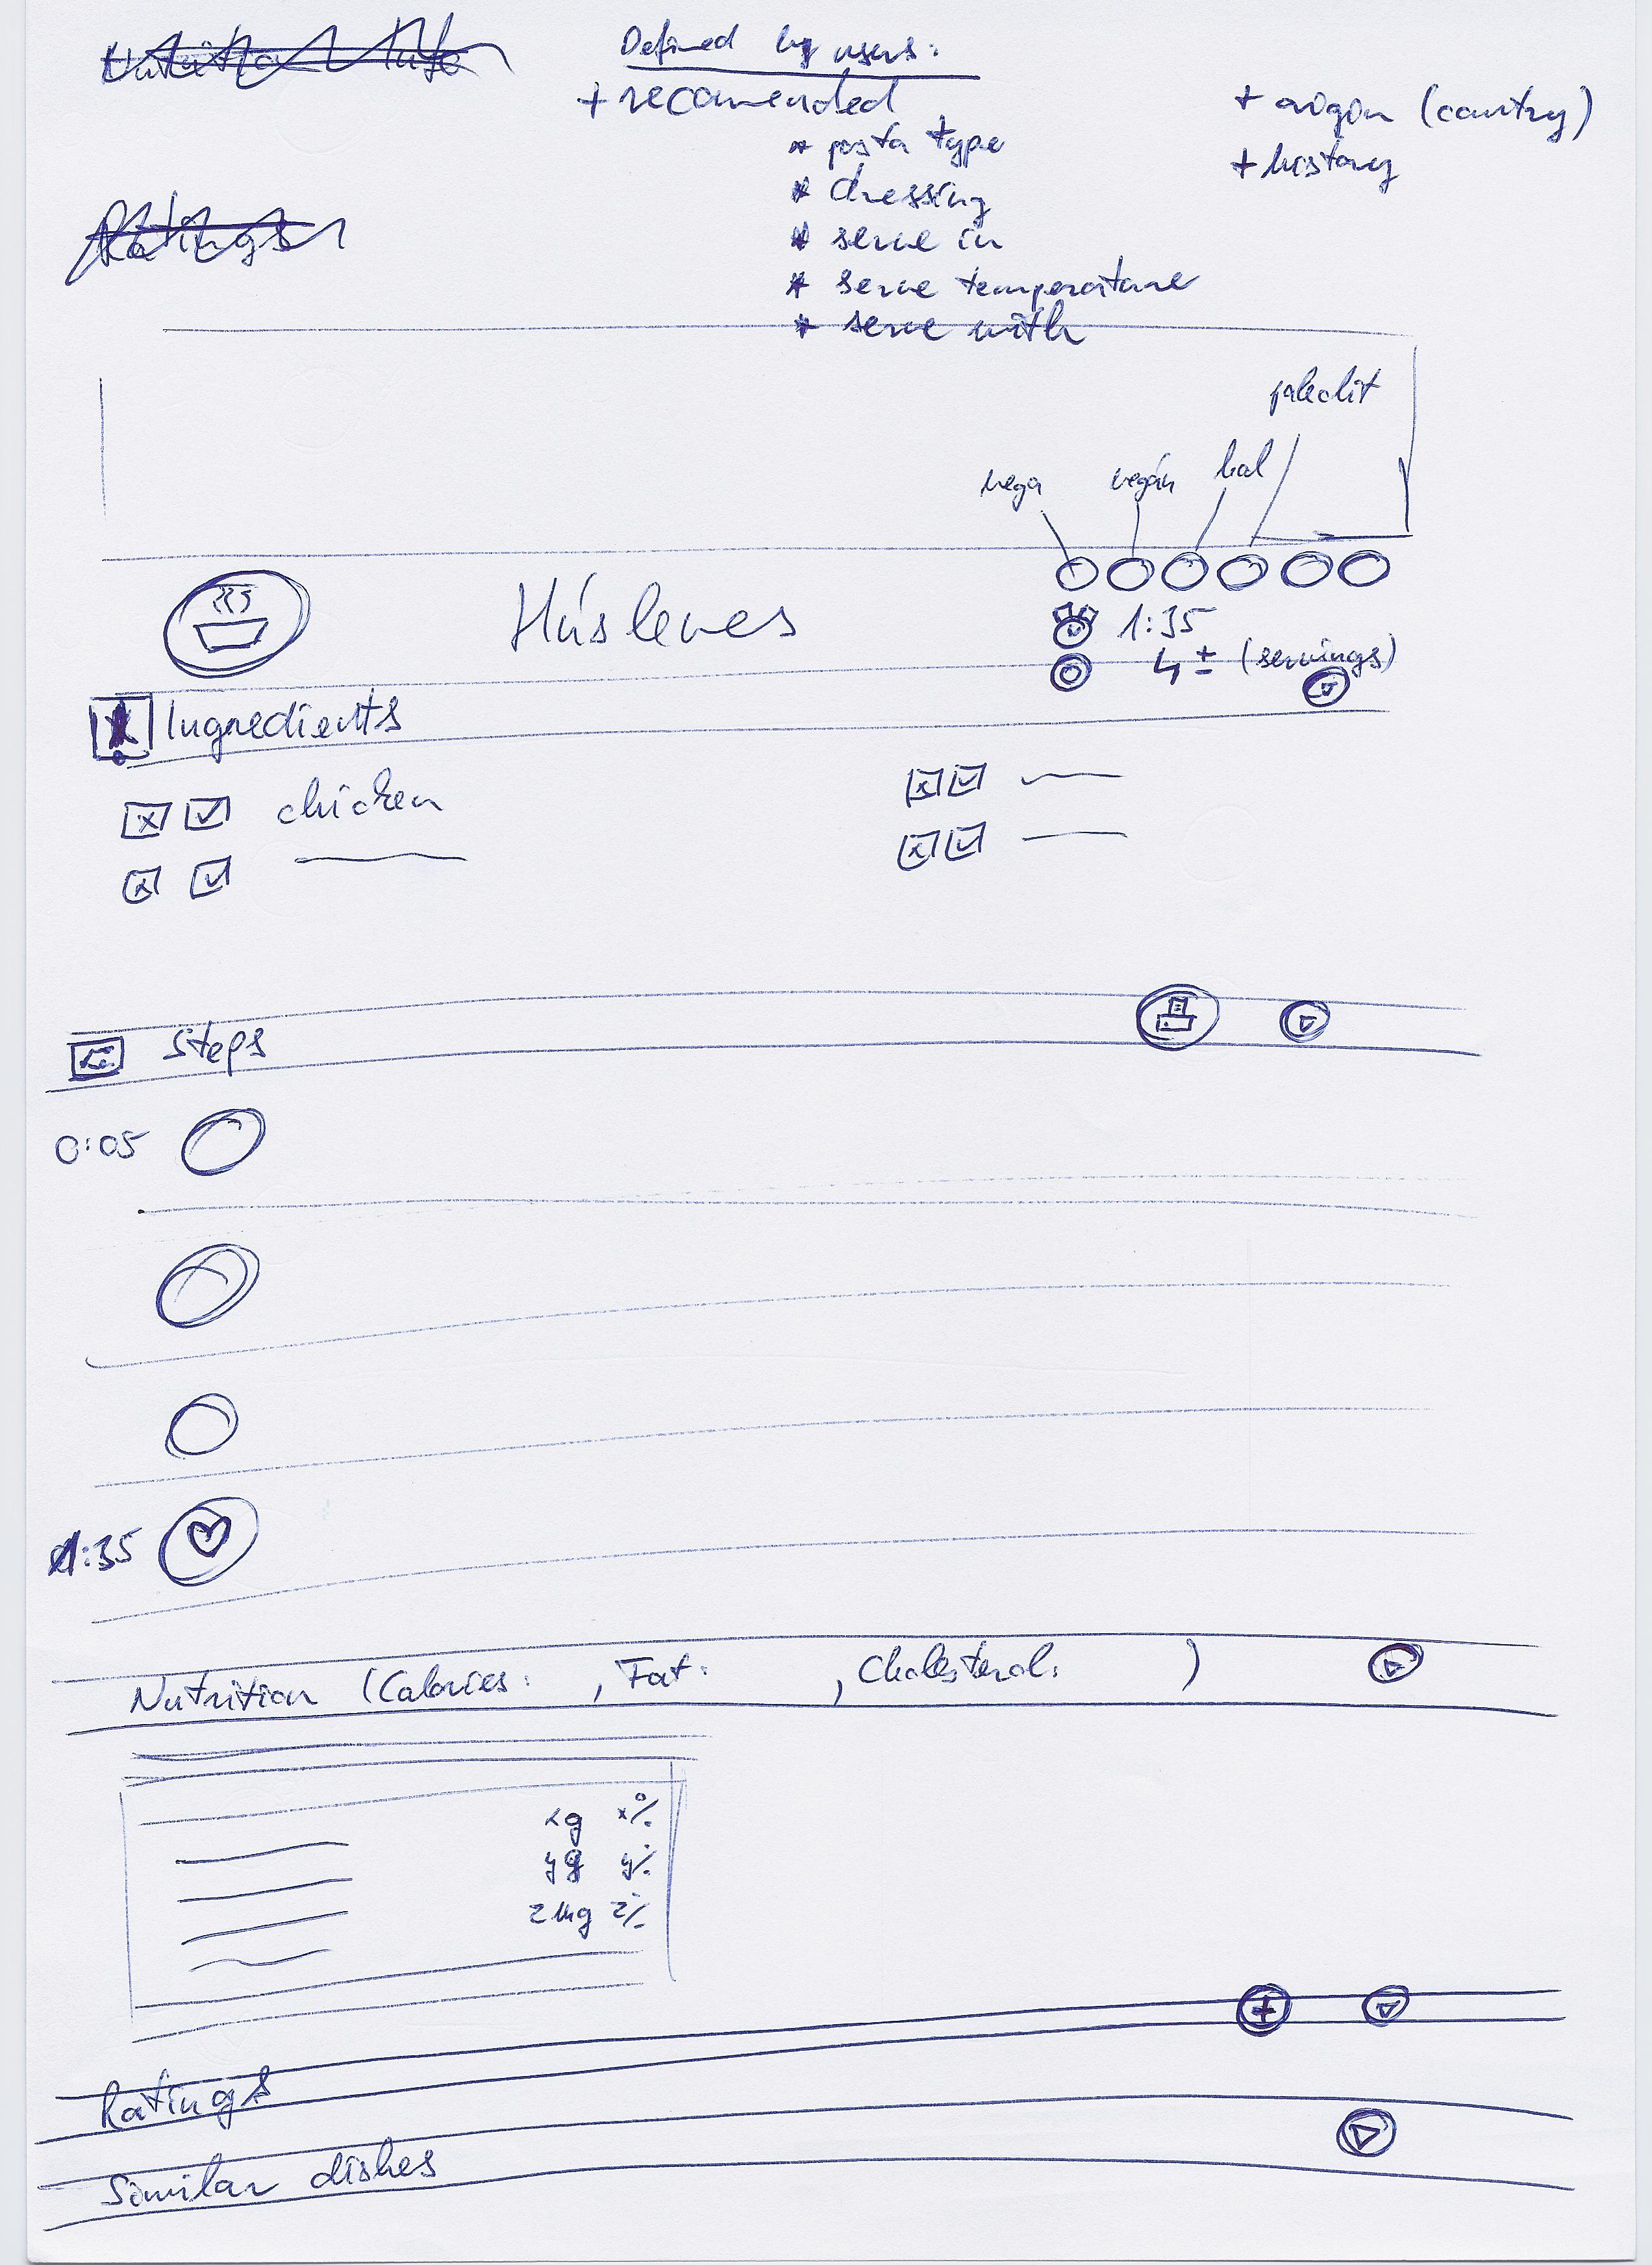 Nutrition Info
Ratings
Defined by users:
+ recomended
* pasta type
* dressing
* serve in
* serve temperature
* serve with
+ origin (country)
+ history
paleolit
vega vegán hal
Húsleves
1:35
4 ± (servings)
Ingredients
chicken
Steps
0:05
1:35
Nutrition (Calories: , Fat: , Cholesterol: )
xg x%
yg y%
zmg z%
Ratings
Similar dishes